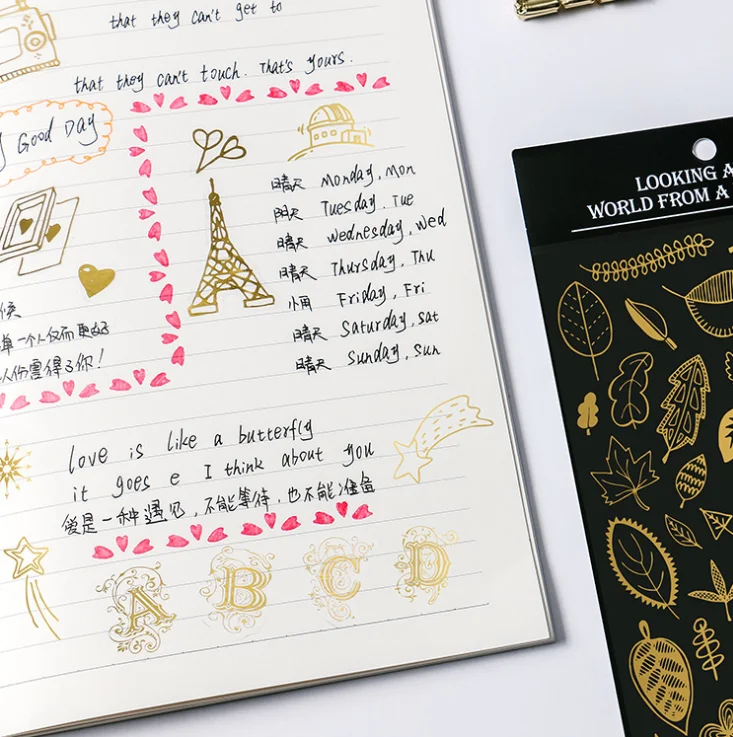 that they can't get to
that they can't touch. That's yours.
Good Day
晴天 Monday, Mon
阴天 Tuesday, Tue
晴天 Wednesday, Wed
晴天 Thursday, Thu
小雨 Friday, Fri
晴天 Saturday, Sat
晴天 Sunday, Sun
候
一个人反而更好
你!
love is like a butterfly
it goes e I think about you
爱是一种遇见,不能等待,也不能准备
A B C D
LOOKING A
WORLD FROM A